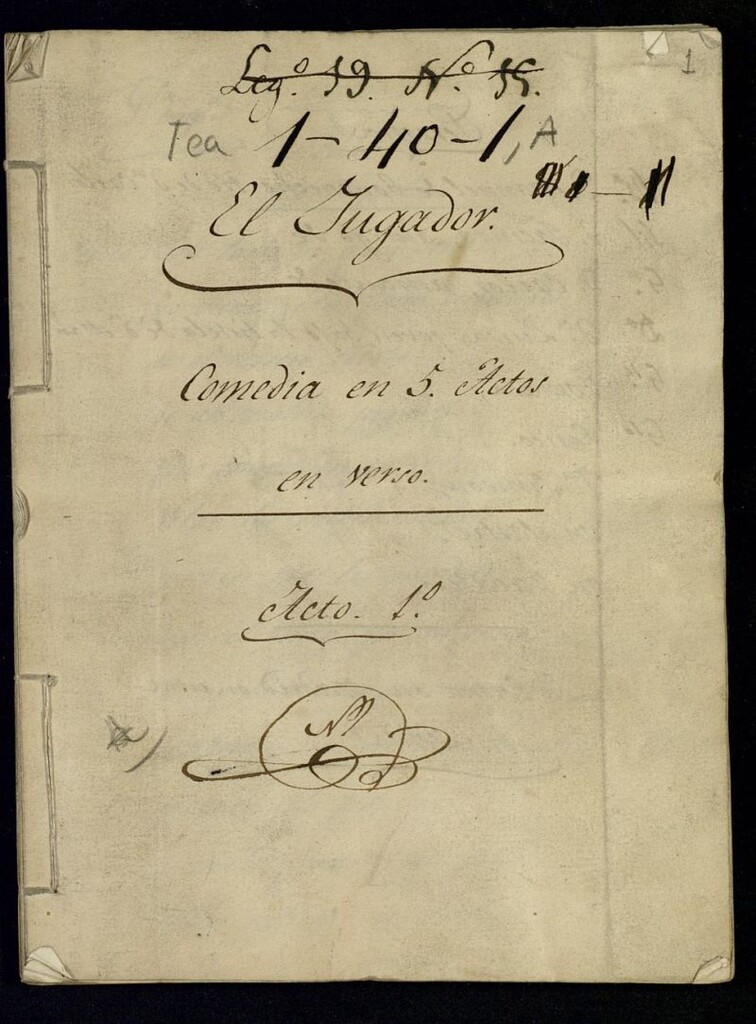 Leg.º 59. N.º 55.
1
Tea 1-40-1, A
El Jugador.
Comedia en 5. Actos
en verso.
Acto. 1º.